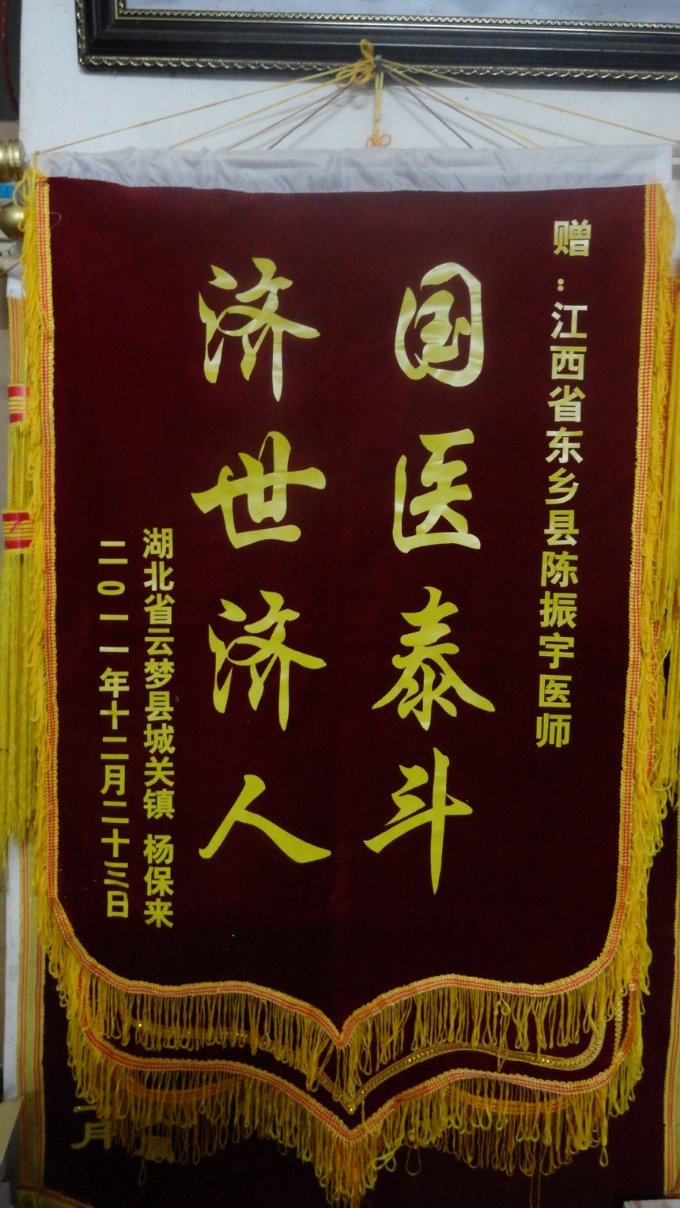 赠：江西省东乡县陈振宇医师
国医泰斗
济世济人
湖北省云梦县城关镇 杨保来
二0一一年十二月二十三日